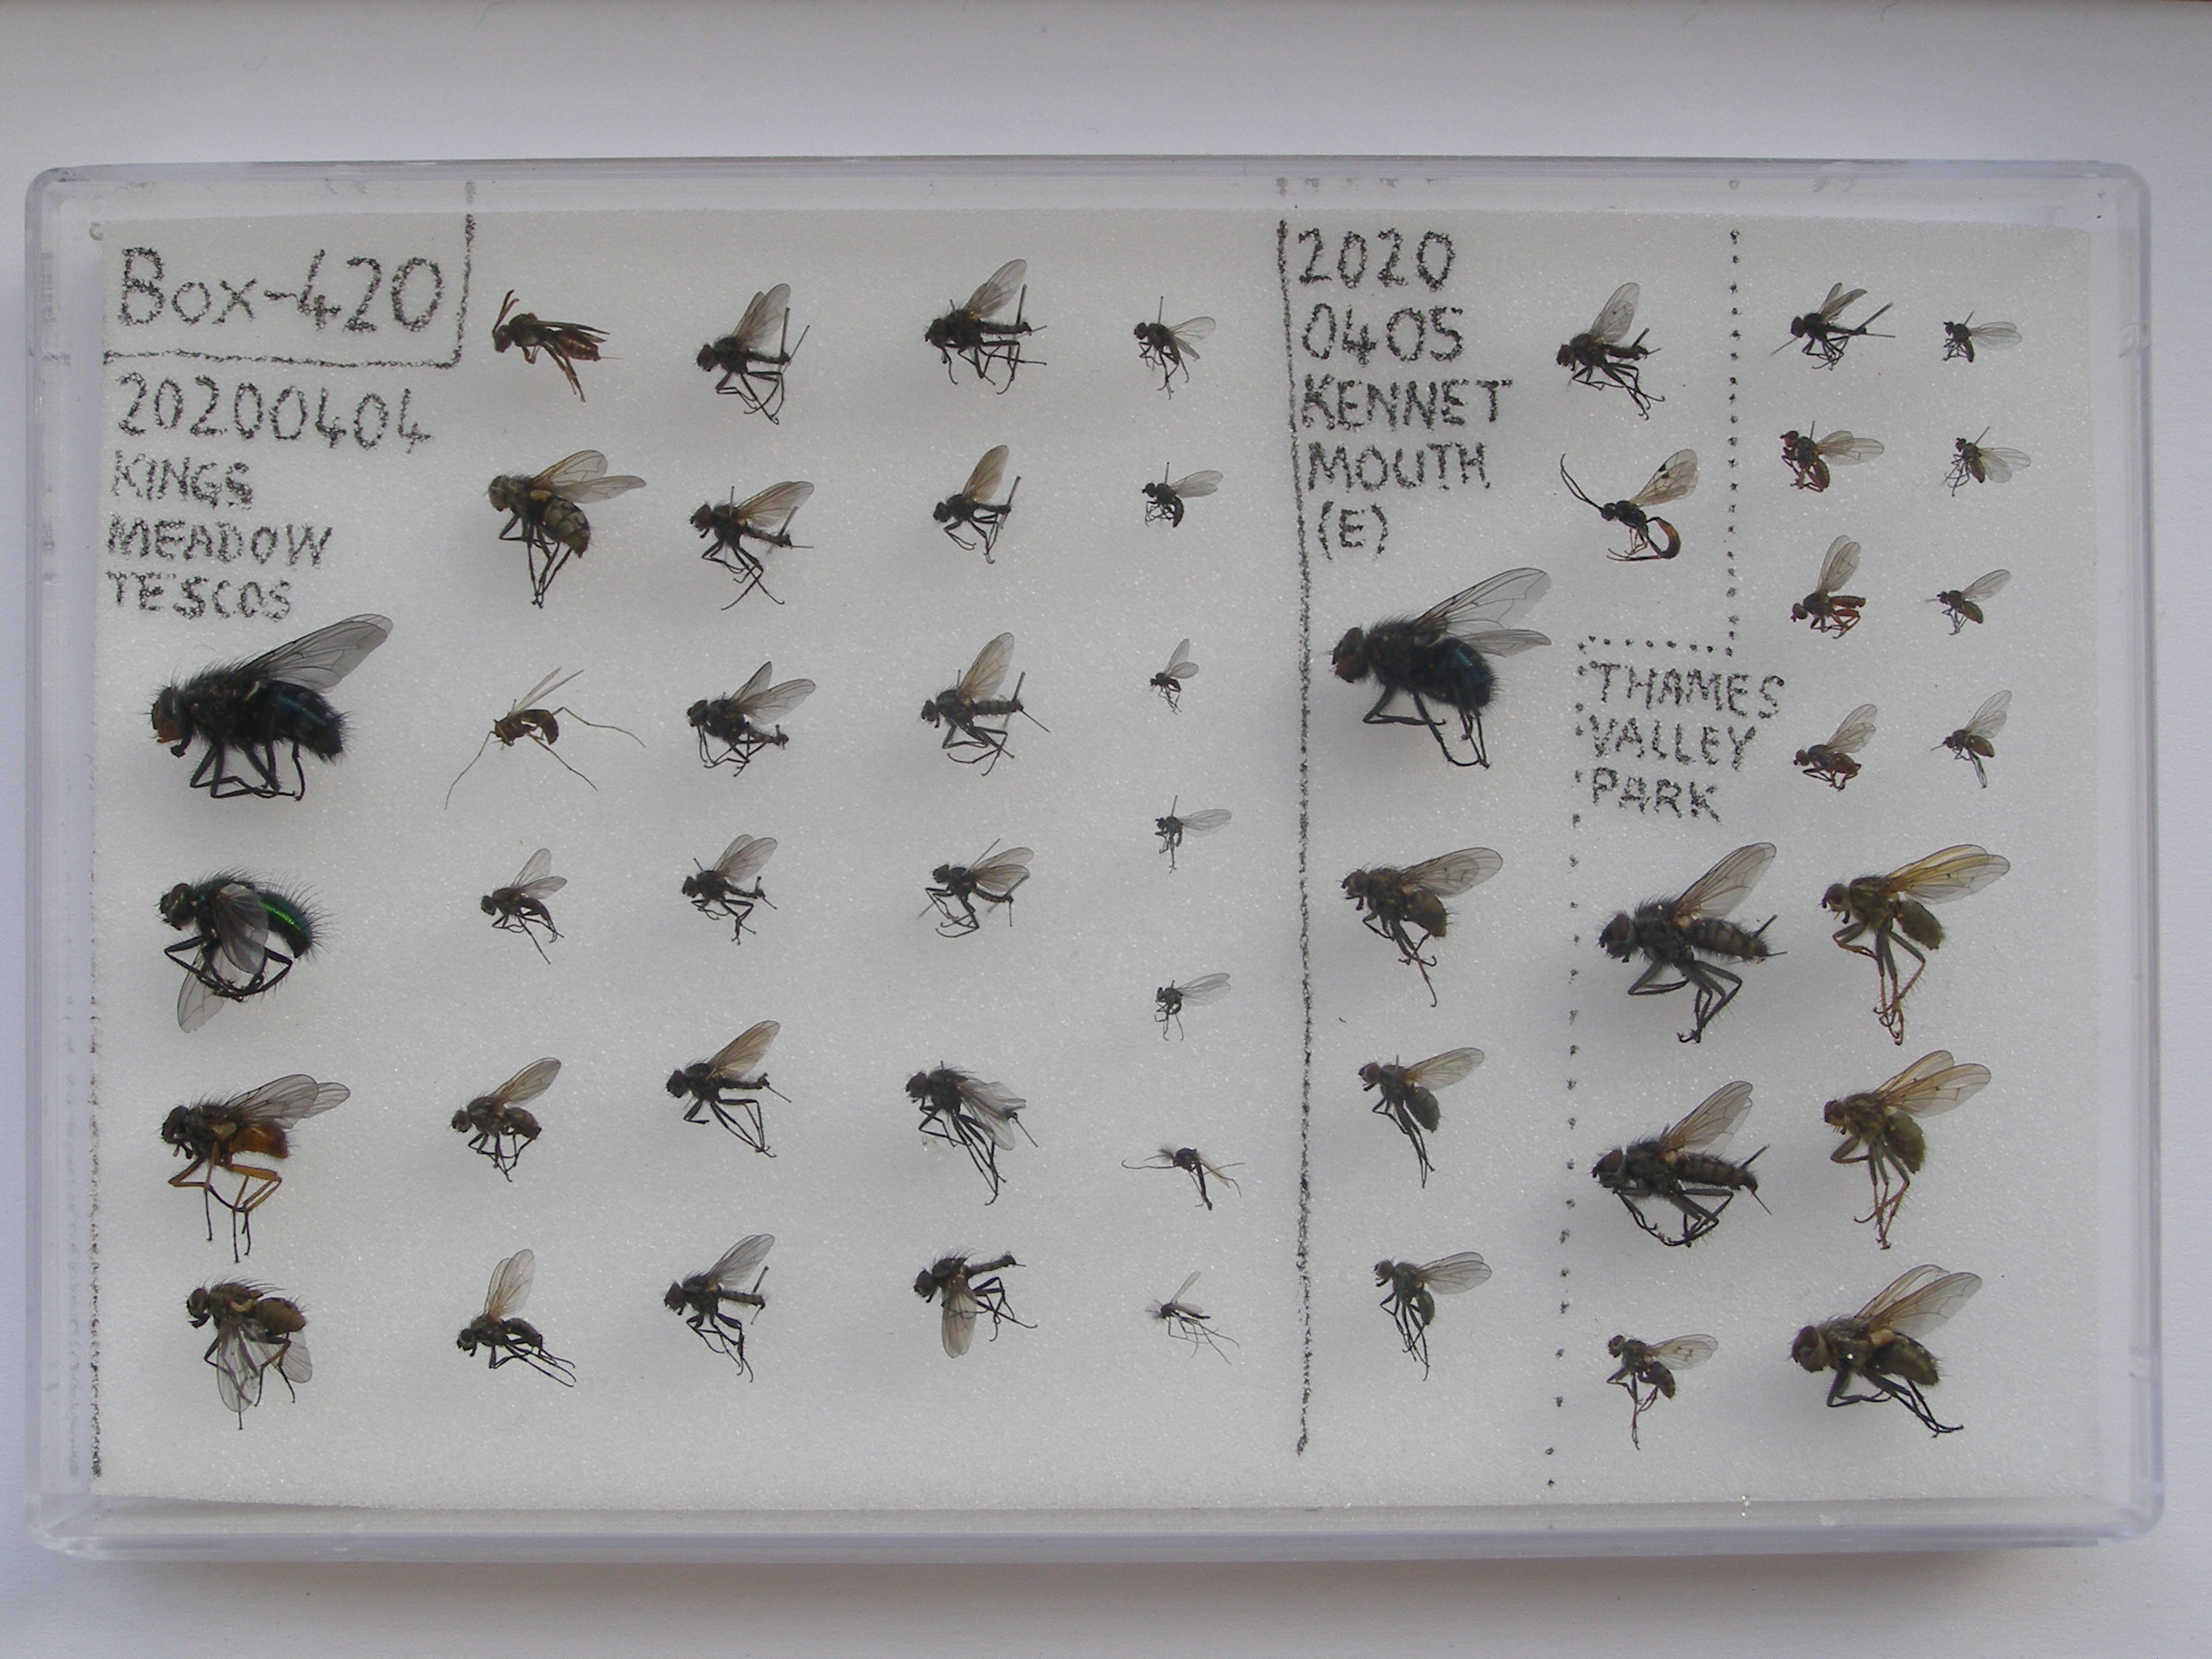 Box-420
20200404
KINGS
MEADOW
TESCOS
2020
0405
KENNET
MOUTH
(E)
THAMES
VALLEY
PARK